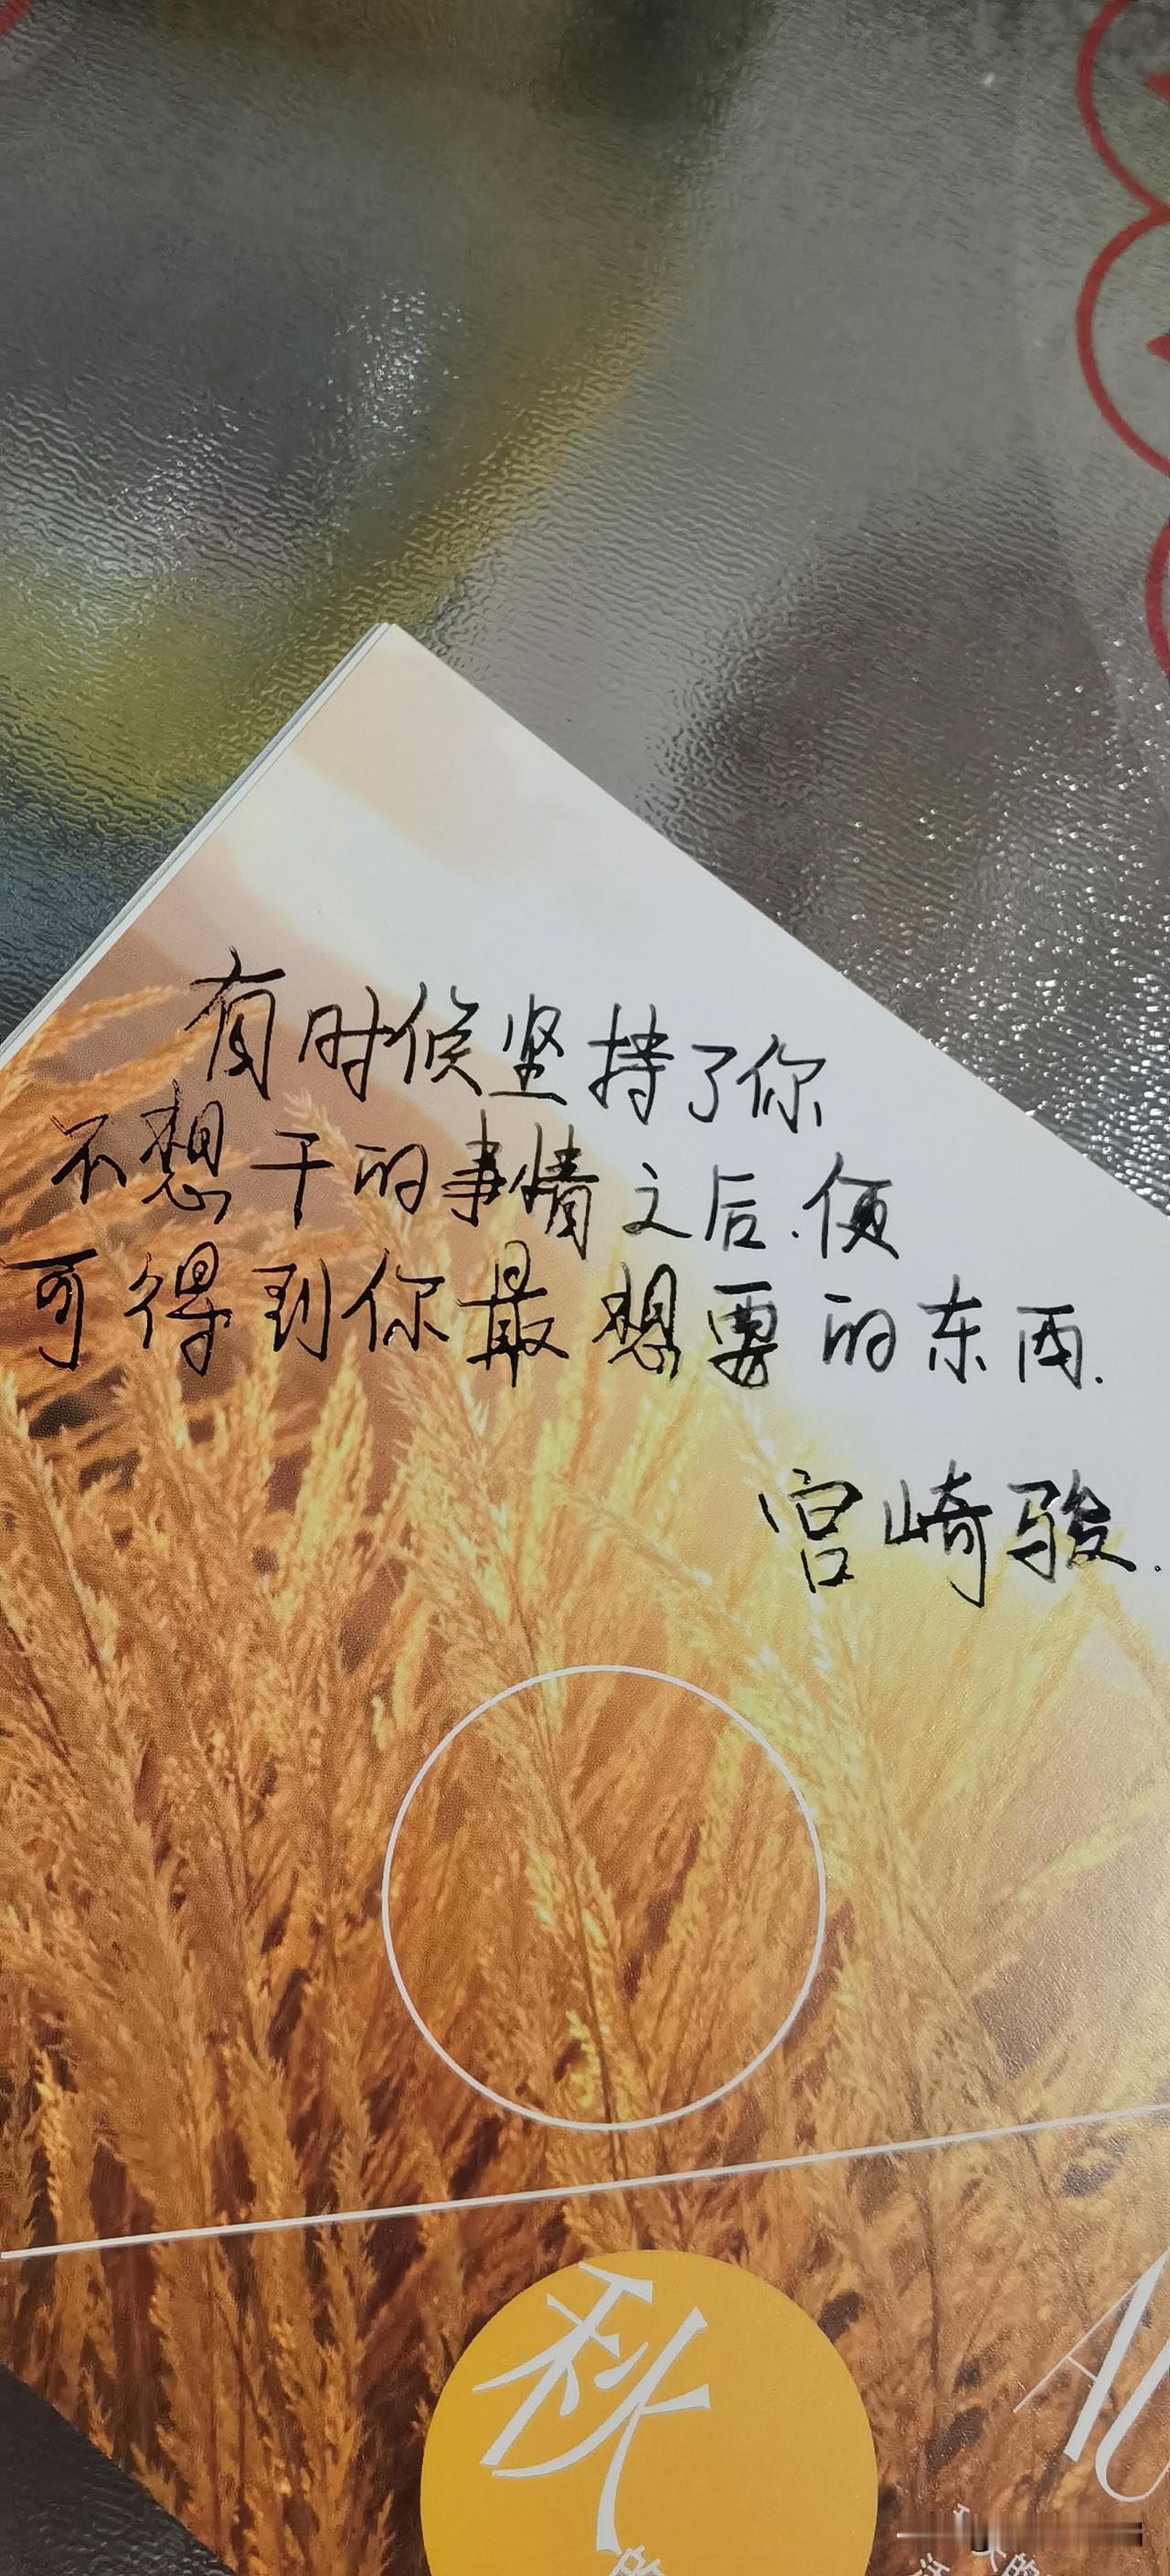 有时候坚持了你
不想干的事情之后.便
可得到你最想要的东西.
宫崎骏.
秋
AU